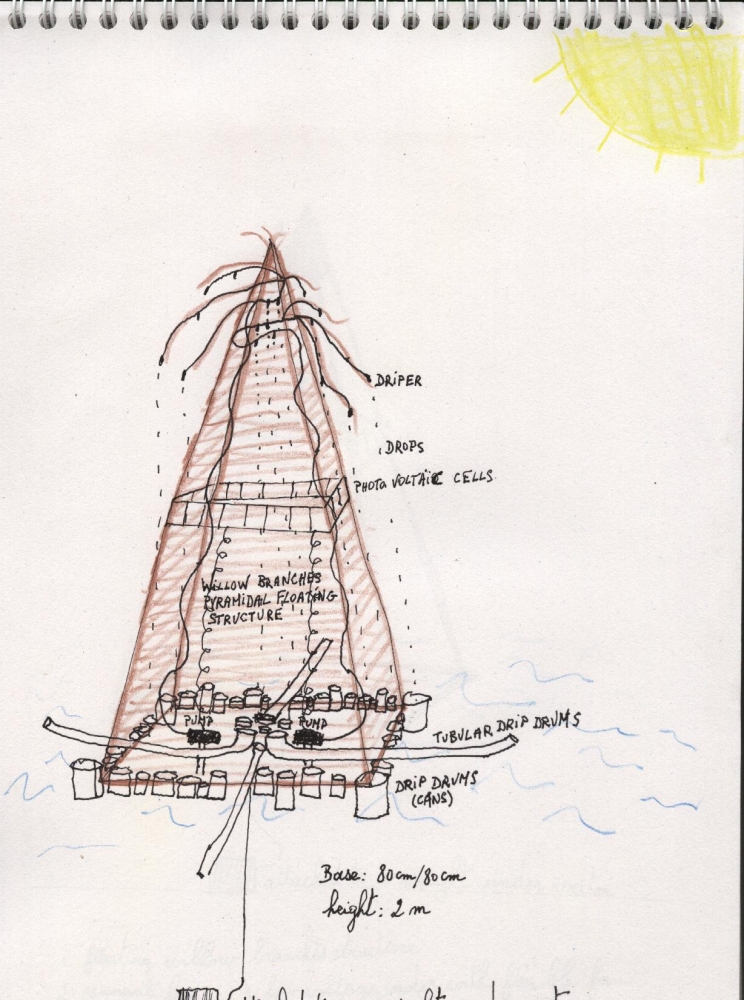 DRIPER
DROPS
PHOTO VOLTAÏC CELLS
WILLOW BRANCHES
PYRAMIDAL FLOATING
STRUCTURE
PUMP
PUMP
TUBULAR DRIP DRUMS
DRIP DRUMS
(CANS)
Base: 80cm/80cm
height: 2 m